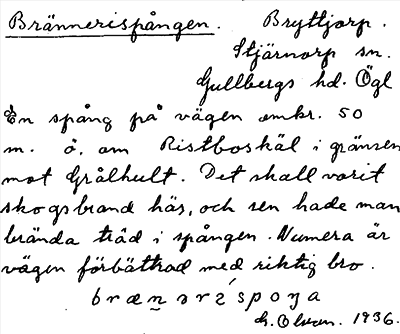 Brännerispången. Bryttjorp.
Stjärnorp sn.
Gullbergs hd. Ögl
En spång på vägen omkr. 50
m. ö. om Ristboskäl i gränsen
mot Grålhult. Det skall varit
skogsbrand här, och sen hade man
brända träd i spången. Numera är
vägen förbättrad med riktig bro.
brænərɛ́spoŋa
G. Olson. 1936.